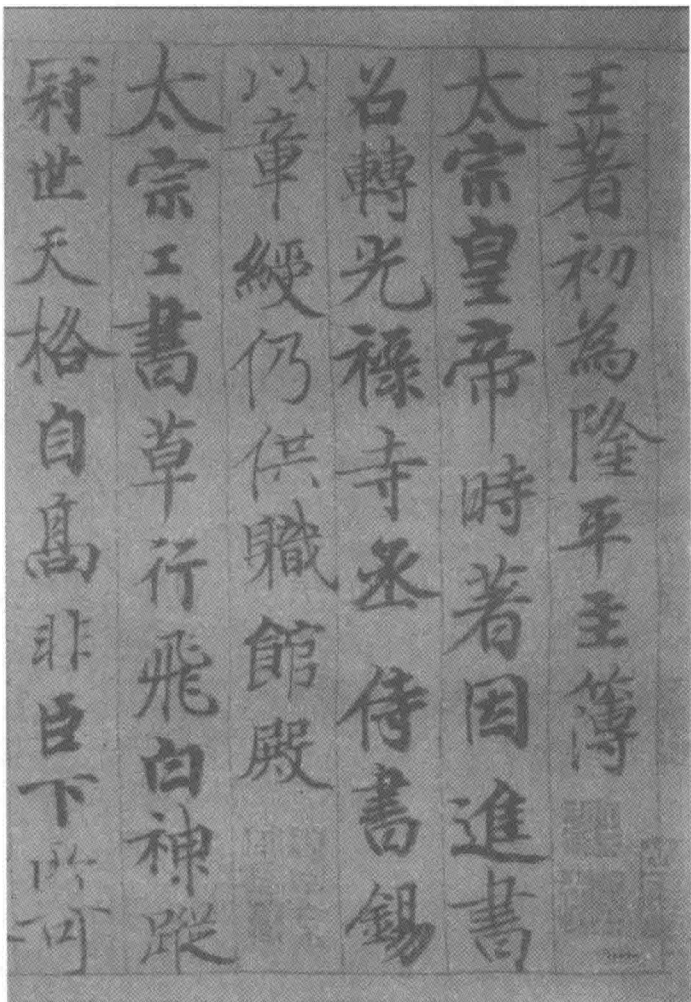 王著初為隆平主簿
太宗皇帝時著因進書
召轉光禄寺丞侍書錫
以章綬仍供職館殿
太宗工書草行飛白神蹤
冠世天格自高非臣下所可